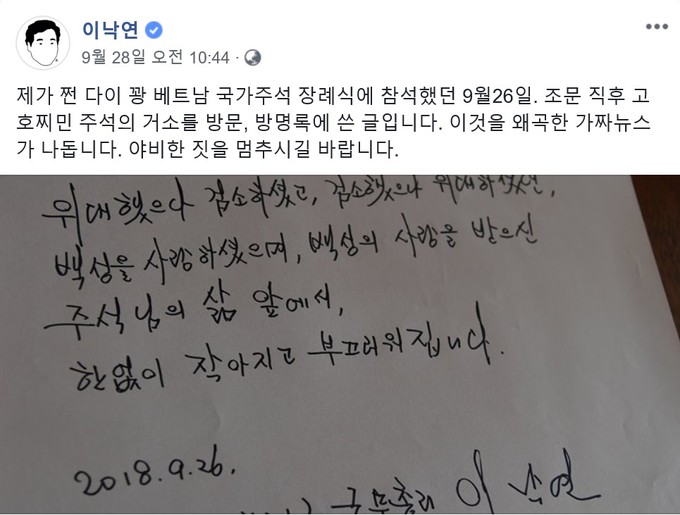 이낙연
9월 28일 오전 10:44
제가 쩐 다이 꽝 베트남 국가주석 장례식에 참석했던 9월26일. 조문 직후 고
호찌민 주석의 거소를 방문, 방명록에 쓴 글입니다. 이것을 왜곡한 가짜뉴스
가 나돕니다. 야비한 짓을 멈추시길 바랍니다.
위대했으나 검소하셨고, 검소했으나 위대하셨던,
백성을 사랑하셨으며, 백성의 사랑을 받으신
주석님의 삶 앞에서,
한없이 작아지고 부끄러워집니다.
2018.9.26.
국무총리 이낙연